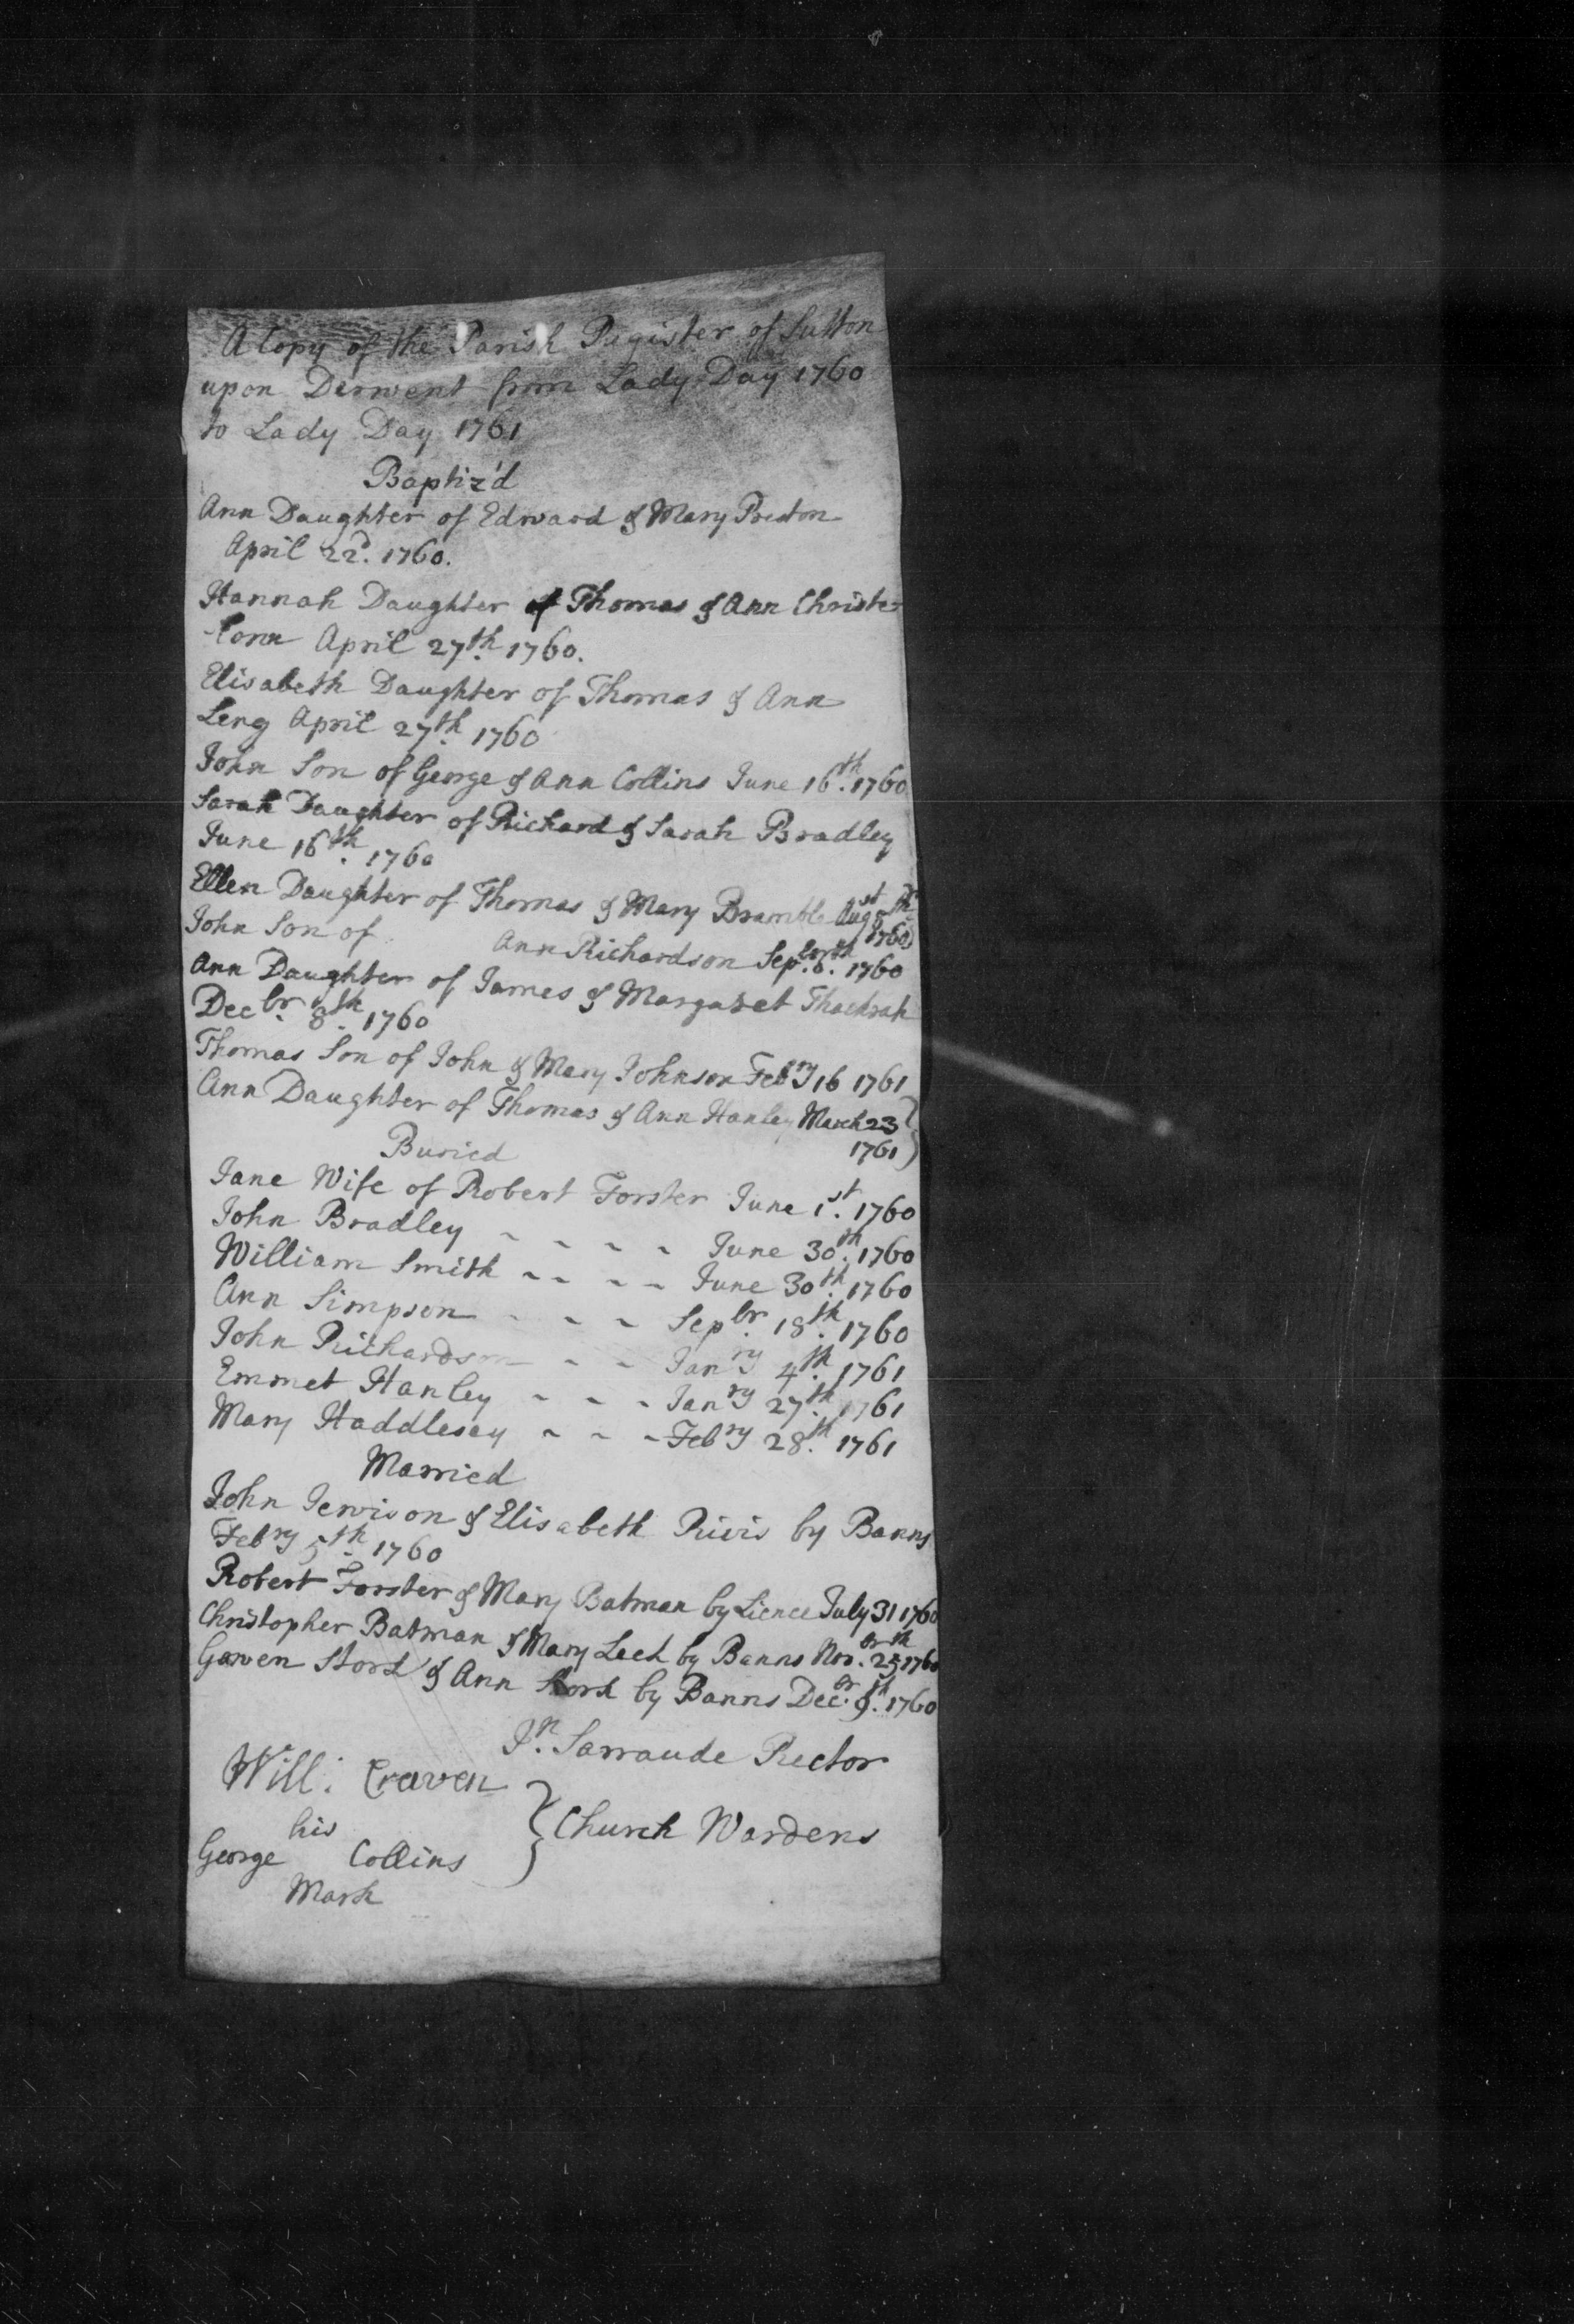 A Copy of the Parish Register of Sutton
upon Derwent from Lady Day 1760
to Lady Day 1761
Baptiz'd
Ann Daughter of Edward & Mary Preston
April 22d. 1760.
Hannah Daughter of Thomas & Ann Christe-
-lonn April 27th. 1760.
Elisabeth Daughter of Thomas & Ann
Leng April 27th. 1760
John Son of George & Ann Collins June 16th. 1760
Sarah Daughter of Richard & Sarah Bradley
June 16th. 1760
Ellen Daughter of Thomas & Mary Bramble Augst
1760)
John Son of Ann Richardson Sepbr. 6th. 1760
Ann Daughter of James & Margaret Thackrah
Decbr. 8th. 1760
Thomas Son of John & Mary Johnson Febry 16 1761
Ann Daughter of Thomas & Ann Hanley March 23
1761)
Buried
Jane Wife of Robert Forster June 1st. 1760
John Bradley - - - - June 30th. 1760
William Smith - - - - June 30th. 1760
Ann Simpson - - - Sepbr. 18th. 1760
John Richardson - - Janry 4th. 1761
Emmet Hanley - - - Janry 27th. 1761
Mary Haddlesey - - - Febry 28th. 1761
Married
John Jewison & Elisabeth Rivis by Banns
Febry 5th. 1760
Robert Forster & Mary Batman by Licence July 31 1760
Christopher Batman & Mary Leek by Banns Novbr. 25th 1760
Gawen Stork & Ann Stork by Banns Decbr. 9th. 1760
Jn. Sarraude Rector
Will: Craven
his
George Collins } Church Wardens
Mark